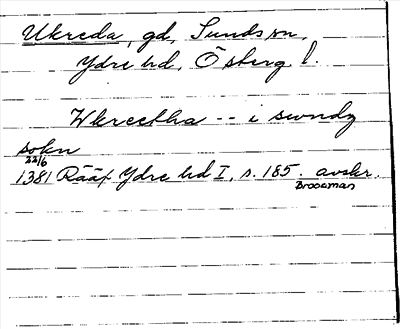 Ukreda, gd, Sunds sn,
Ydre hd, Österg l.
Wkreetha -- i swndz
sokn
22/6
1381 Rääf Ydre hd I, s. 185. avskr.
Broocman